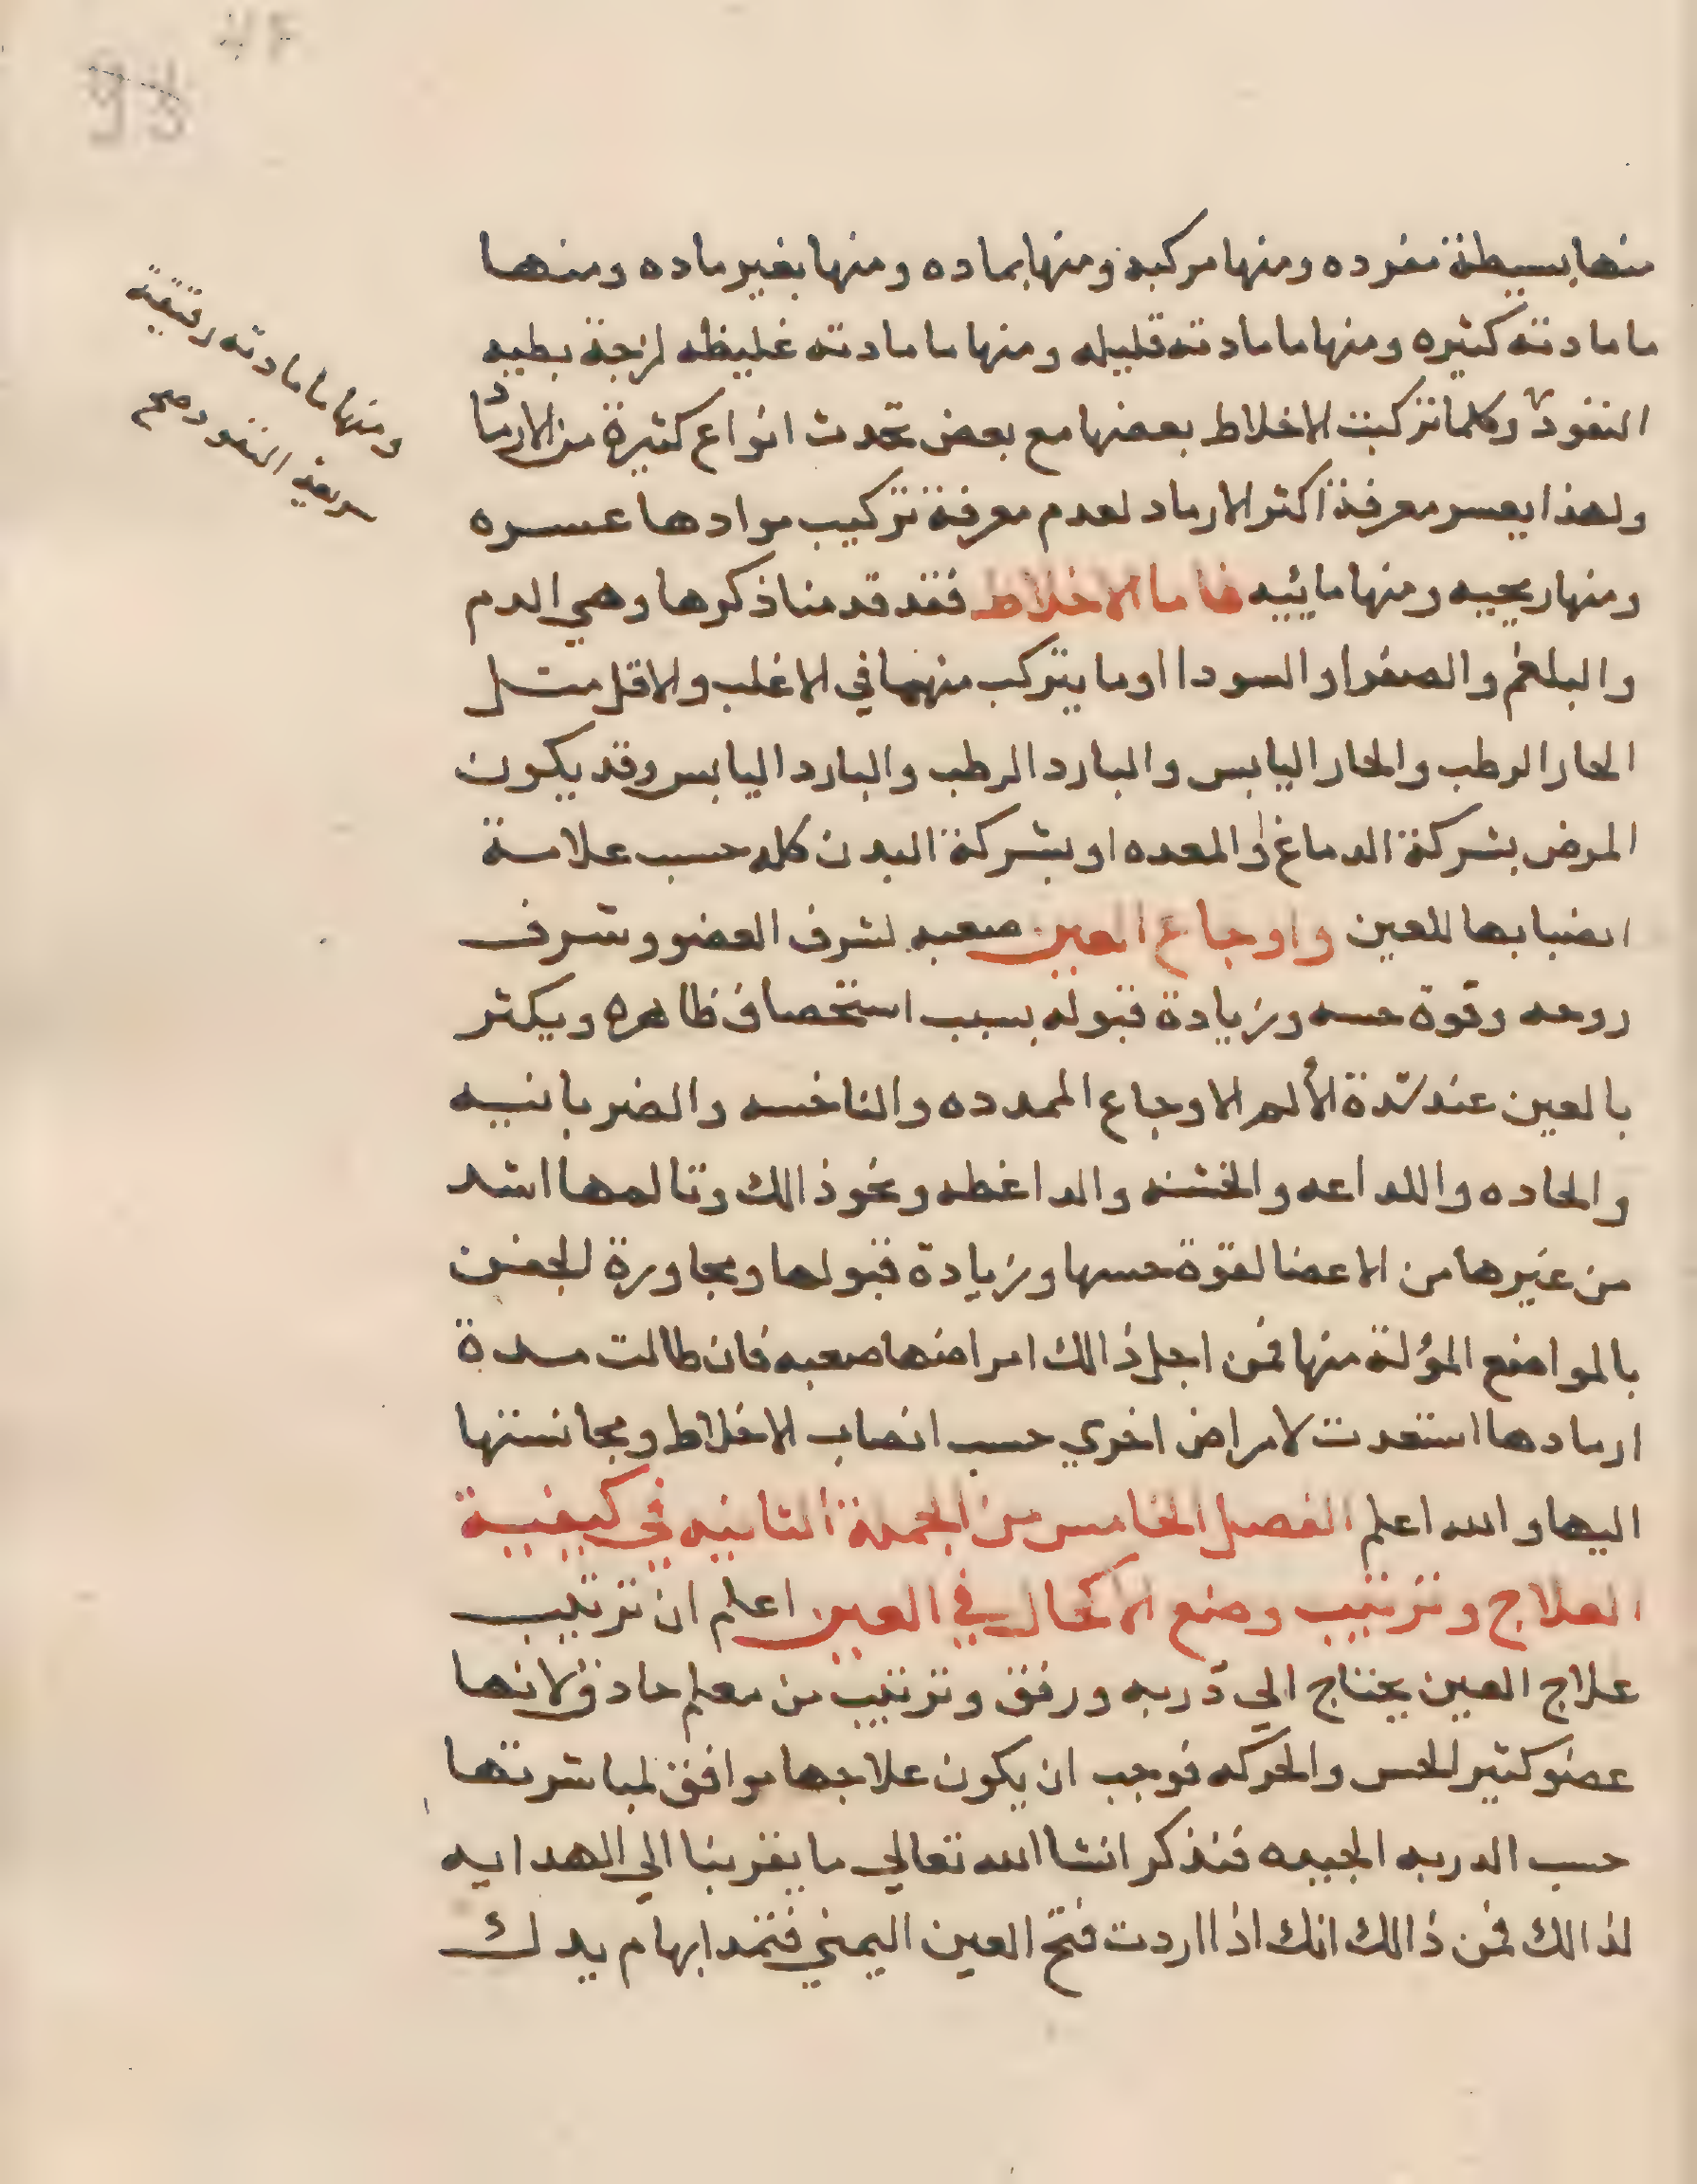 منها بسيطة مفرده ومنها مركبه ومنها بماده ومنها بغير ماده ومنها
ما مادته كثيره ومنها ما مادته قليله ومنها ما مادته غليظه لزجة بطيه
النفود وكلما تركبت الاخلاط بعضها مع بعض تحدث انواع كثيرة من الارماد
ومنها ما مادته رقيقية
سريعة النفود صح
ولهذا يعسر معرفة اكثر الارماد لعدم معرفة تركيب موادها عسره
ومنها ريحيه ومنها مائيه فاما الاخلاط فقد قدمنا ذكرها وهي الدم
والبلغم والصفرا والسودا او ما يتركب منهما في الاغلب والاقل مثل
الحار الرطب والحار اليابس والبارد الرطب والبارد اليابس وقد يكون
المرض بشركة الدماغ والمعده او بشركة البدن كله حسب علامة
انضبابها للعين واوجاع العين صعبه لشرف العضو وشرف
روحه وقوة حسه وزيادة قبوله بسبب استخصاف ظاهره ويكثر
بالعين عند شدة الألم الاوجاع الممدده والناخسه والضربانيه
والحاده واللداعه والخشنه والداغطه ونحو ذالك وتالمها اشد
من غيرها من الاعضا لقوة حسها وزيادة قبولها ومجاورة للجفن
بالمواضع المؤلة منها فمن اجل ذالك امراضها صعبه فان طالت مدة
ارمادها استعدت لامراض اخري حسب انصاب الاخلاط ومجانستها
اليها والله اعلم الفصل الخامس من الجملة الثانيه في كيفية
العلاج وترتيب وضع الاكحال في العين اعلم ان ترتيب
علاج العين يحتاج الي دربه ورفق وترتيب من معلم حادق لانها
عضو كثير للحس والحركه فوجب ان يكون علاجها موافق لمباشرتها
حسب الدربه الجيده فنذكر انشا الله تعالي ما يقربنا الي الهدايه
لذالك فمن ذالك انك اذا اردت فتح العين اليمني فتمد ابهام يدك